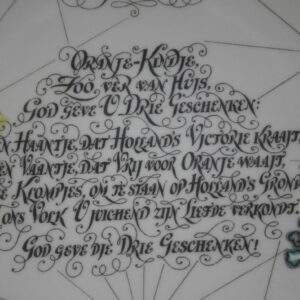 Oranje-Kindje,
Zoo ver van Huis,
God geve U Drie Geschenken:
en Haantje, dat Holland's Victorie kraait,
en Vaantje, dat Vrij voor Oranje waait,
e Klompjes, om te staan op Holland's Grond
ons Volk U juichend zijn Liefde verkondt.
God geve die Drie Geschenken!